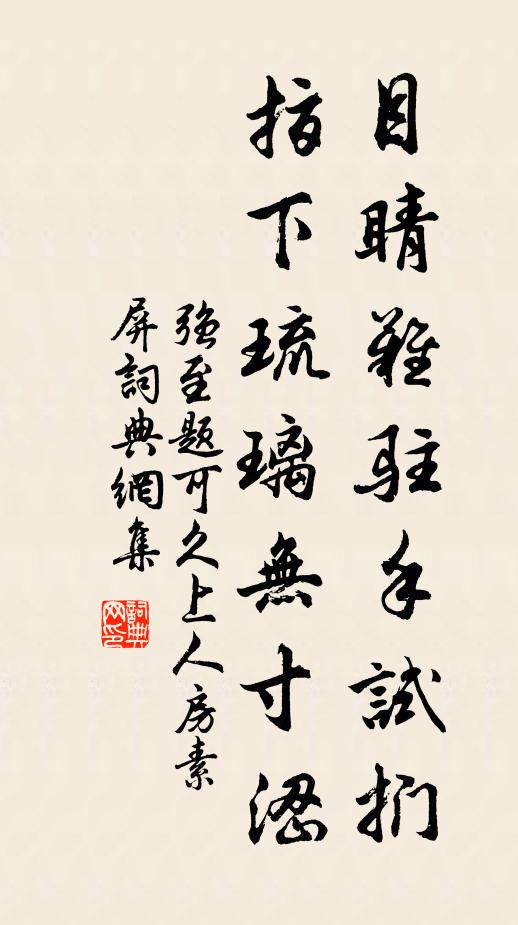 目睛難駐手試捫
指下琉璃無寸澀
强至題可久上人房素
屏詞典網集
詞典网印